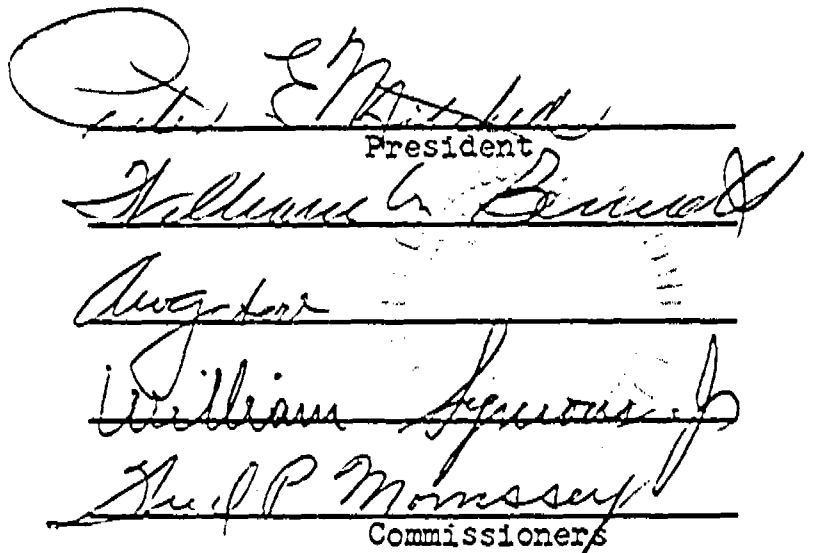 Peter E Mitchell
President
William M. Bennett
William Symons Jr
Fred P Morrissey
Commissioners